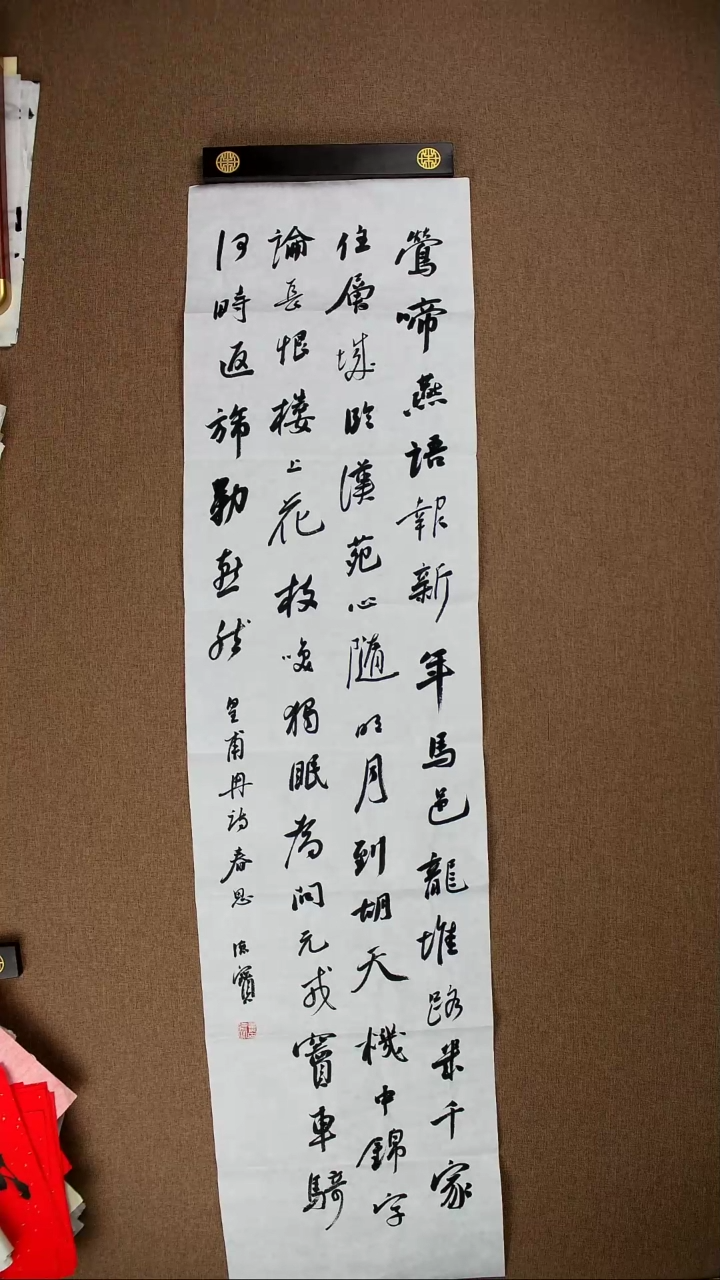 鶯啼燕語報新年馬邑龍堆路幾千家
住層城臨漢苑心隨明月到胡天機中錦字
論長恨楼上花枝咲獨眠為問元戎竇車騎
何時返旆勒燕然 皇甫冉詩春思 寶